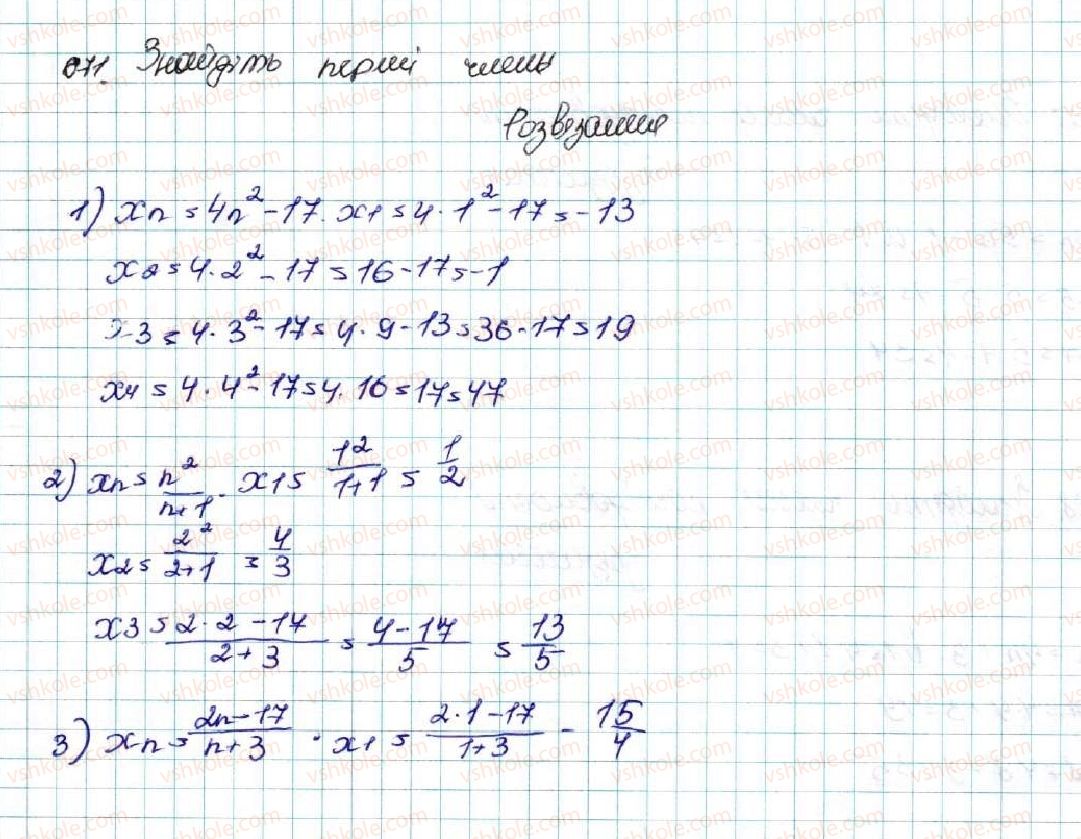 611. Знайдіть перші члены
Розвезання
1) xn = 4n² - 17. x1 = 4 · 1² - 17 = -13
x2 = 4 · 2² - 17 = 16 - 17 = -1
x3 = 4 · 3² - 17 = 4 · 9 - 13 = 36 - 17 = 19
x4 = 4 · 4² - 17 = 4 · 16 = 17 = 47
2) xn = n²/n+1 . x1 = 1²/1+1 = 1/2
x2 = 2²/2+1 = 4/3
x3 = 2·2 - 17/2+3 = 4-17/5 = 13/5
3) xn = 2n-17/n+3 . x1 = 2·1-17/1+3 - 15/4